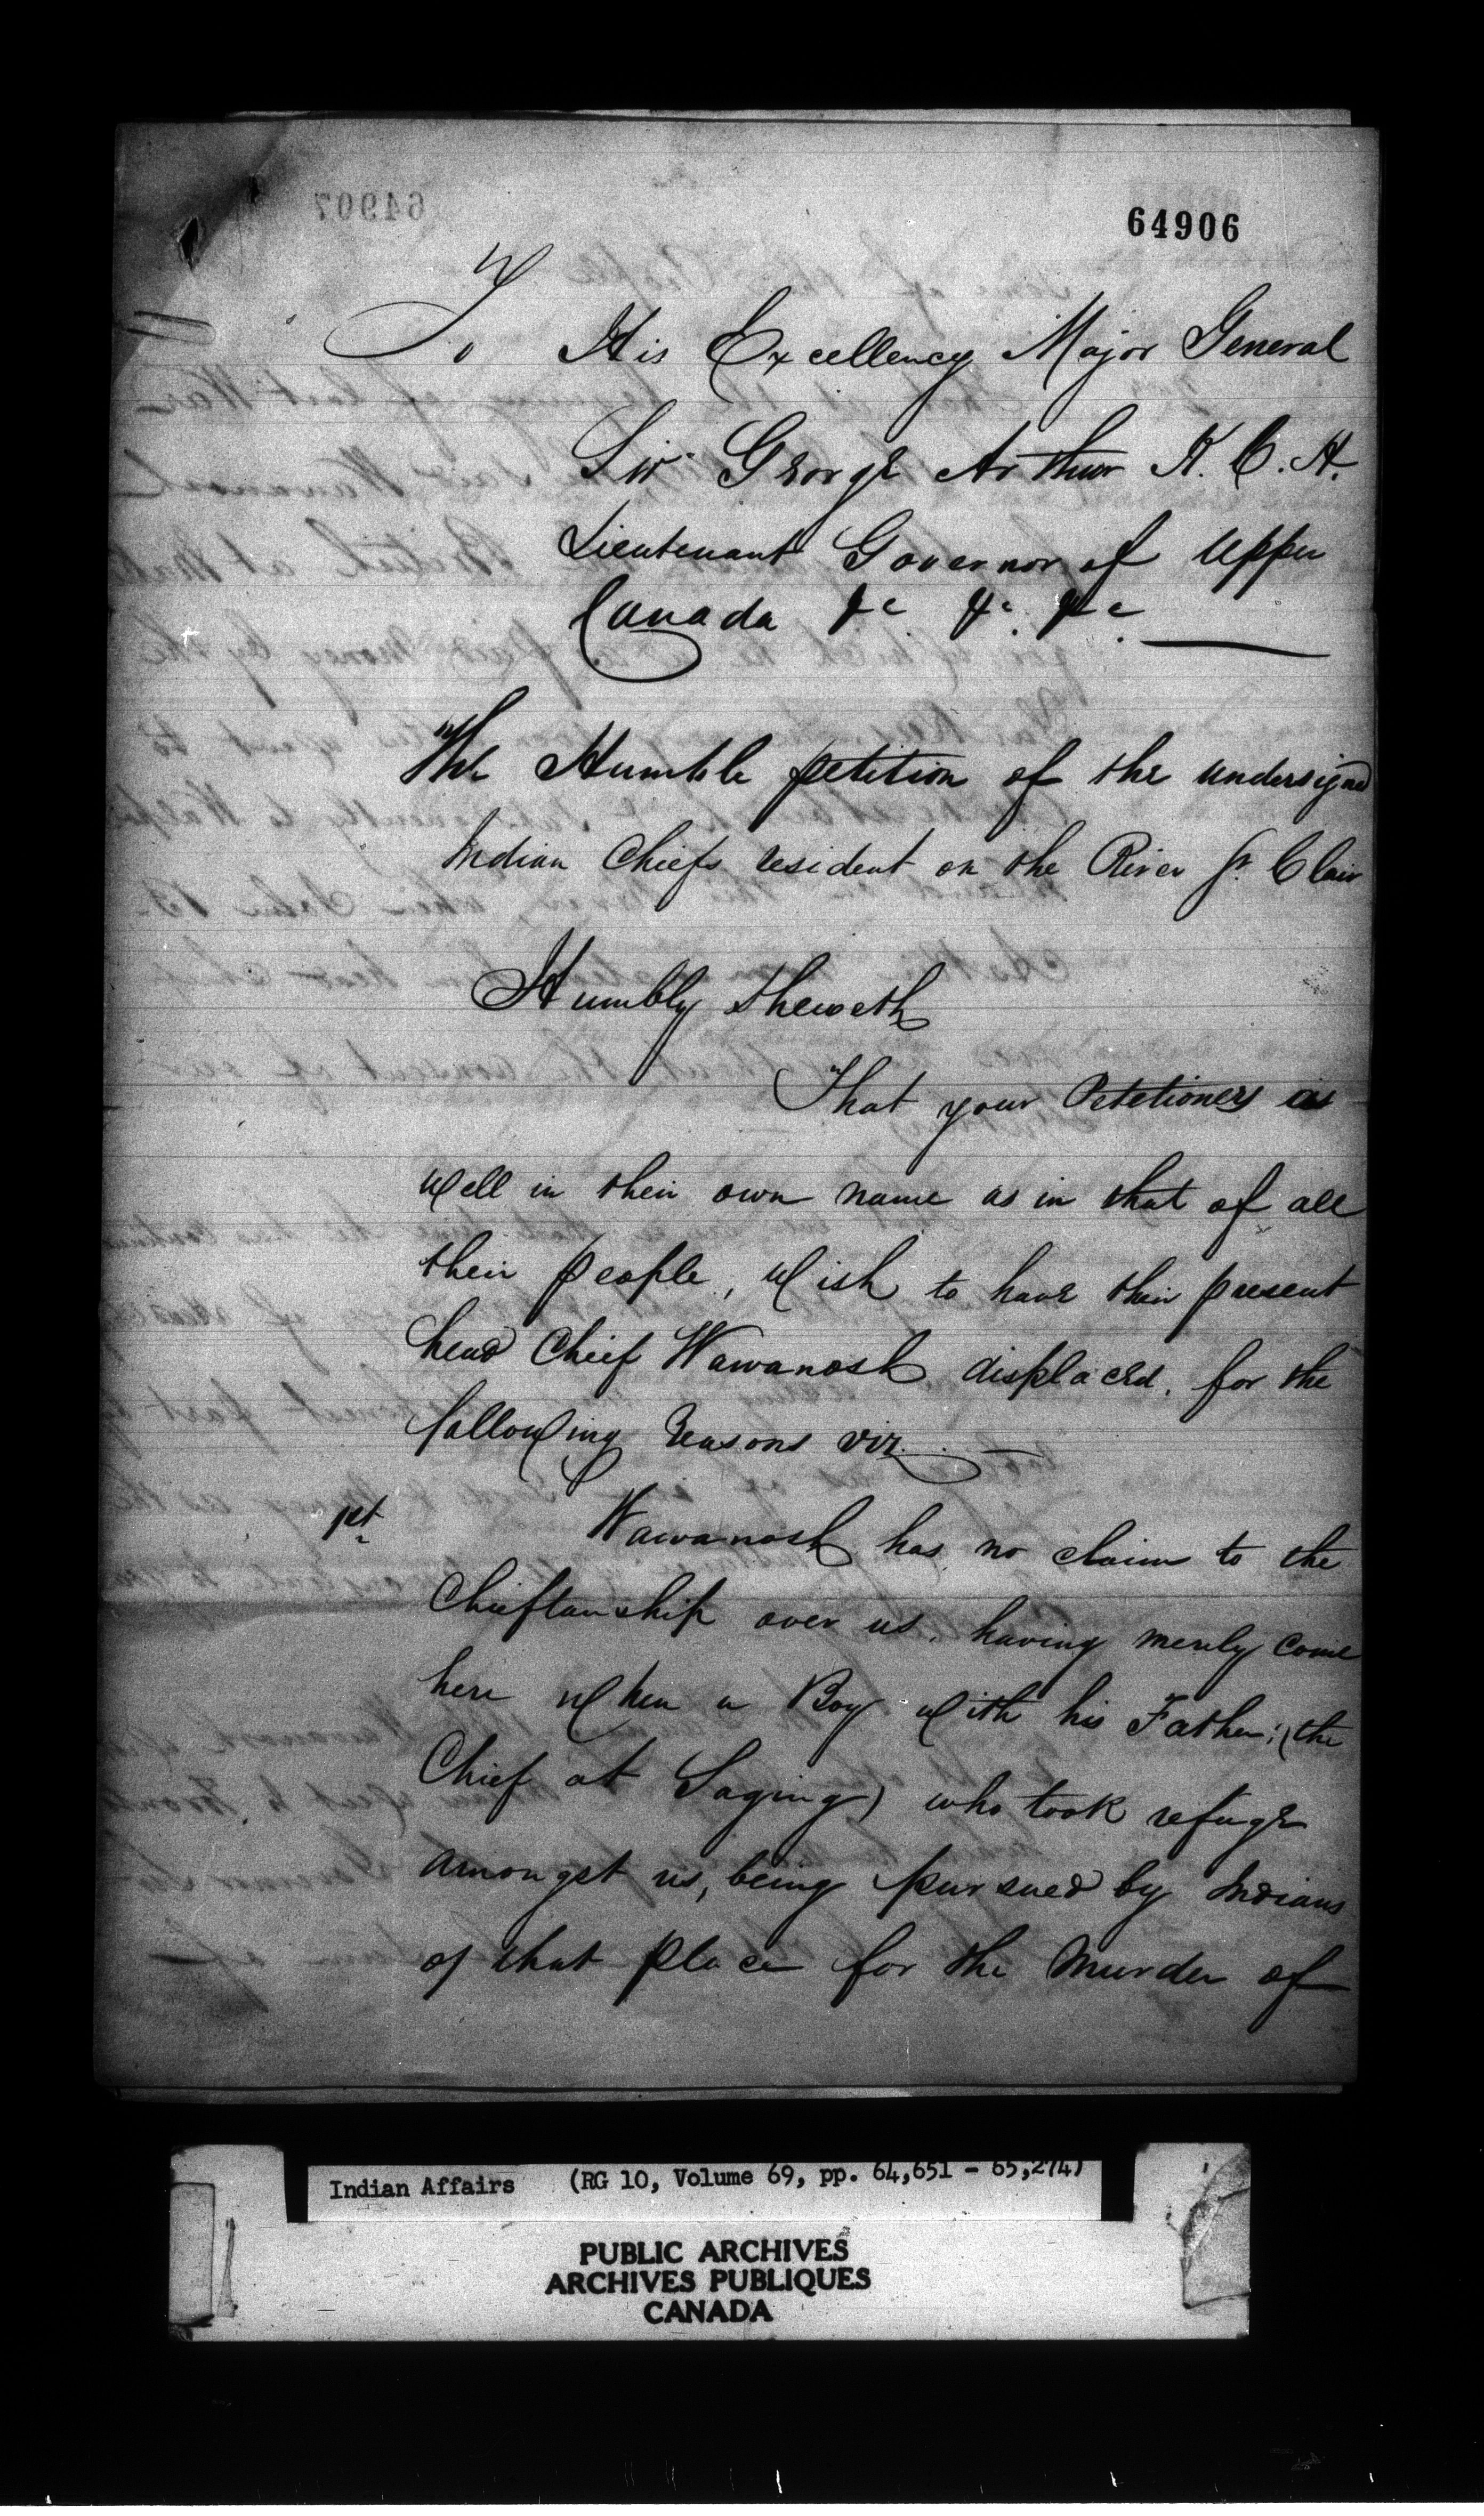 64906
64907
To His Excellency Major General
Sir George Arthur K. C. H.
Lieutenant Governor of Upper
Canada &c &c. &c.
The Humble petition of the undersigned
Indian Chiefs resident on the River St. Clair
Humbly Sheweth
That your Petetioners as
well in their own name as in that of all
their people, wish to have their present
head Chief Wawanosh displaced. for the
following reasons viz. —
1st Wawanosh has no claim to the
Chieftanship over us, having merely come
here when a Boy with his Father; (the
Chief at Saging) who took refuge
amongst us, being pursued by Indians
of that place for the Murder of
Indian Affairs (RG 10, Volume 69, pp. 64,651 - 65,274)
PUBLIC ARCHIVES
ARCHIVES PUBLIQUES
CANADA